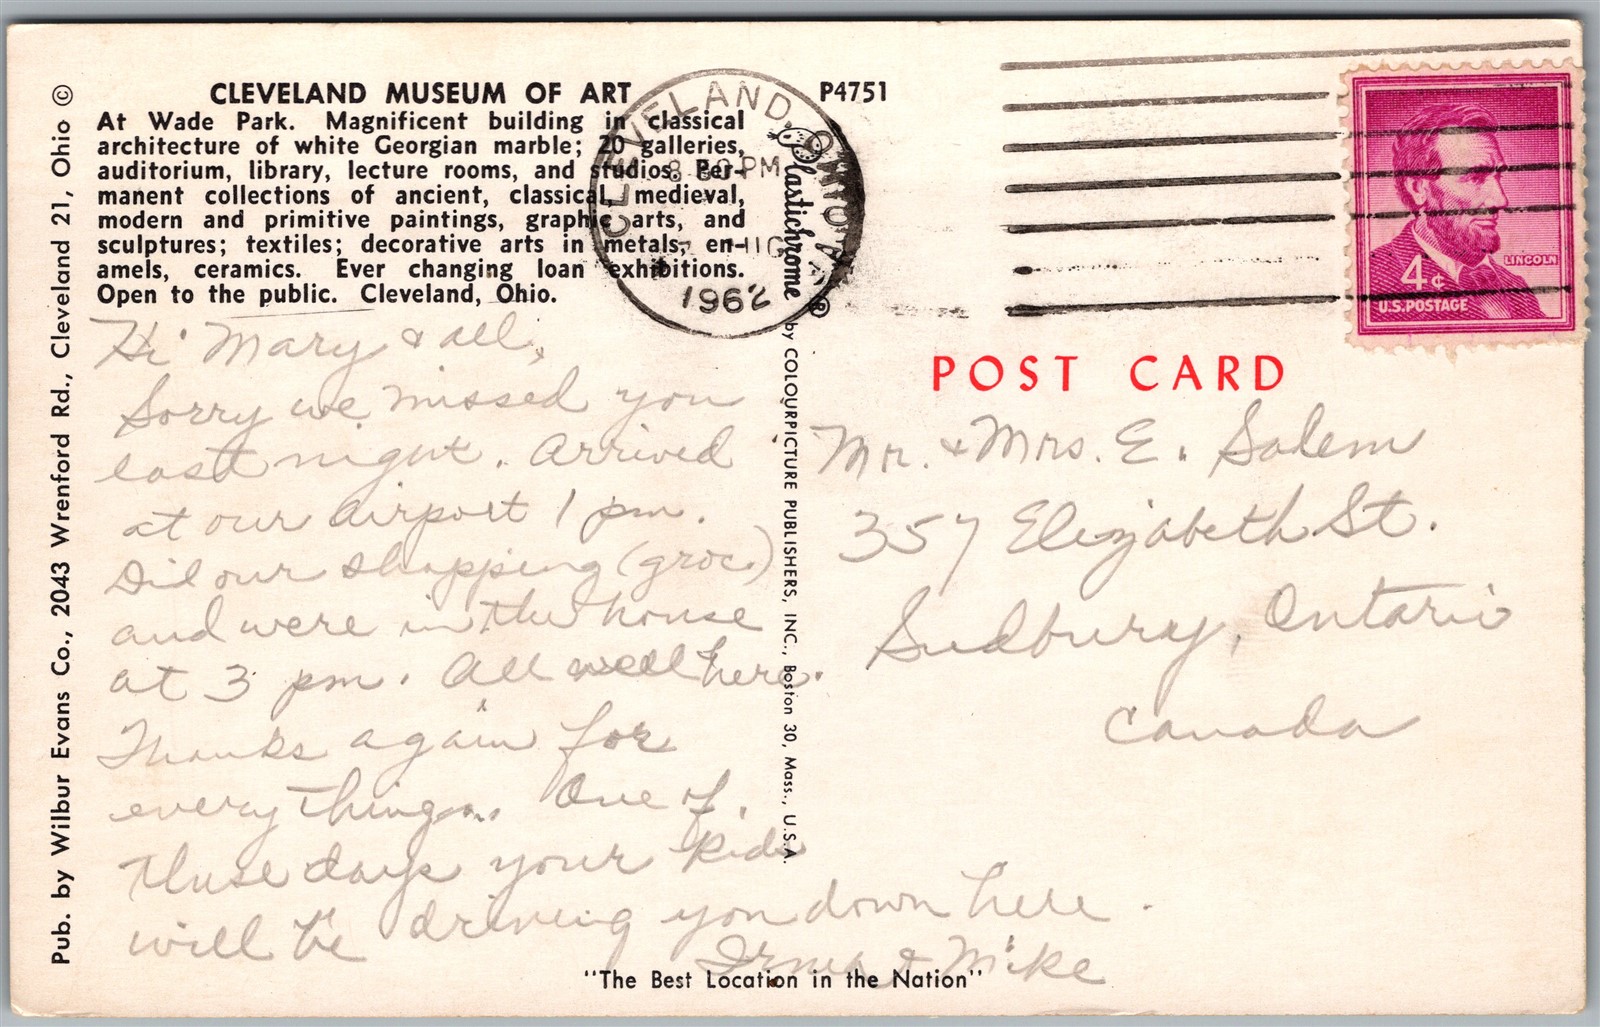 CLEVELAND MUSEUM OF ART
At Wade Park. Magnificent building in classical
architecture of white Georgian marble; 20 galleries,
auditorium, library, lecture rooms, and studios. Per-
manent collections of ancient, classical, medieval,
modern and primitive paintings, graphic arts, and
sculptures; textiles; decorative arts in metals, en-
amels, ceramics. Ever changing loan exhibitions.
Open to the public. Cleveland, Ohio.
P4751
Pub. by Wilbur Evans Co., 2043 Wrenford Rd., Cleveland 21, Ohio ©
Plastichrome ® by COLOURPICTURE PUBLISHERS, INC., Boston 30, Mass., U.S.A.
CLEVELAND, OHIO
PM
1962
LINCOLN
4¢
U.S. POSTAGE
POST CARD
Hi Mary & all,
Sorry we missed you
last night. Arrived
at our airport 1 pm.
Did our shopping (groc.)
and were in the house
at 3 pm. All well here.
Thanks again for
everything. One of
these days your kids
will be driving you down here.
Irma & Mike
Mr. & Mrs. E. Salem
357 Elizabeth St.
Sudbury, Ontario
Canada
"The Best Location in the Nation"